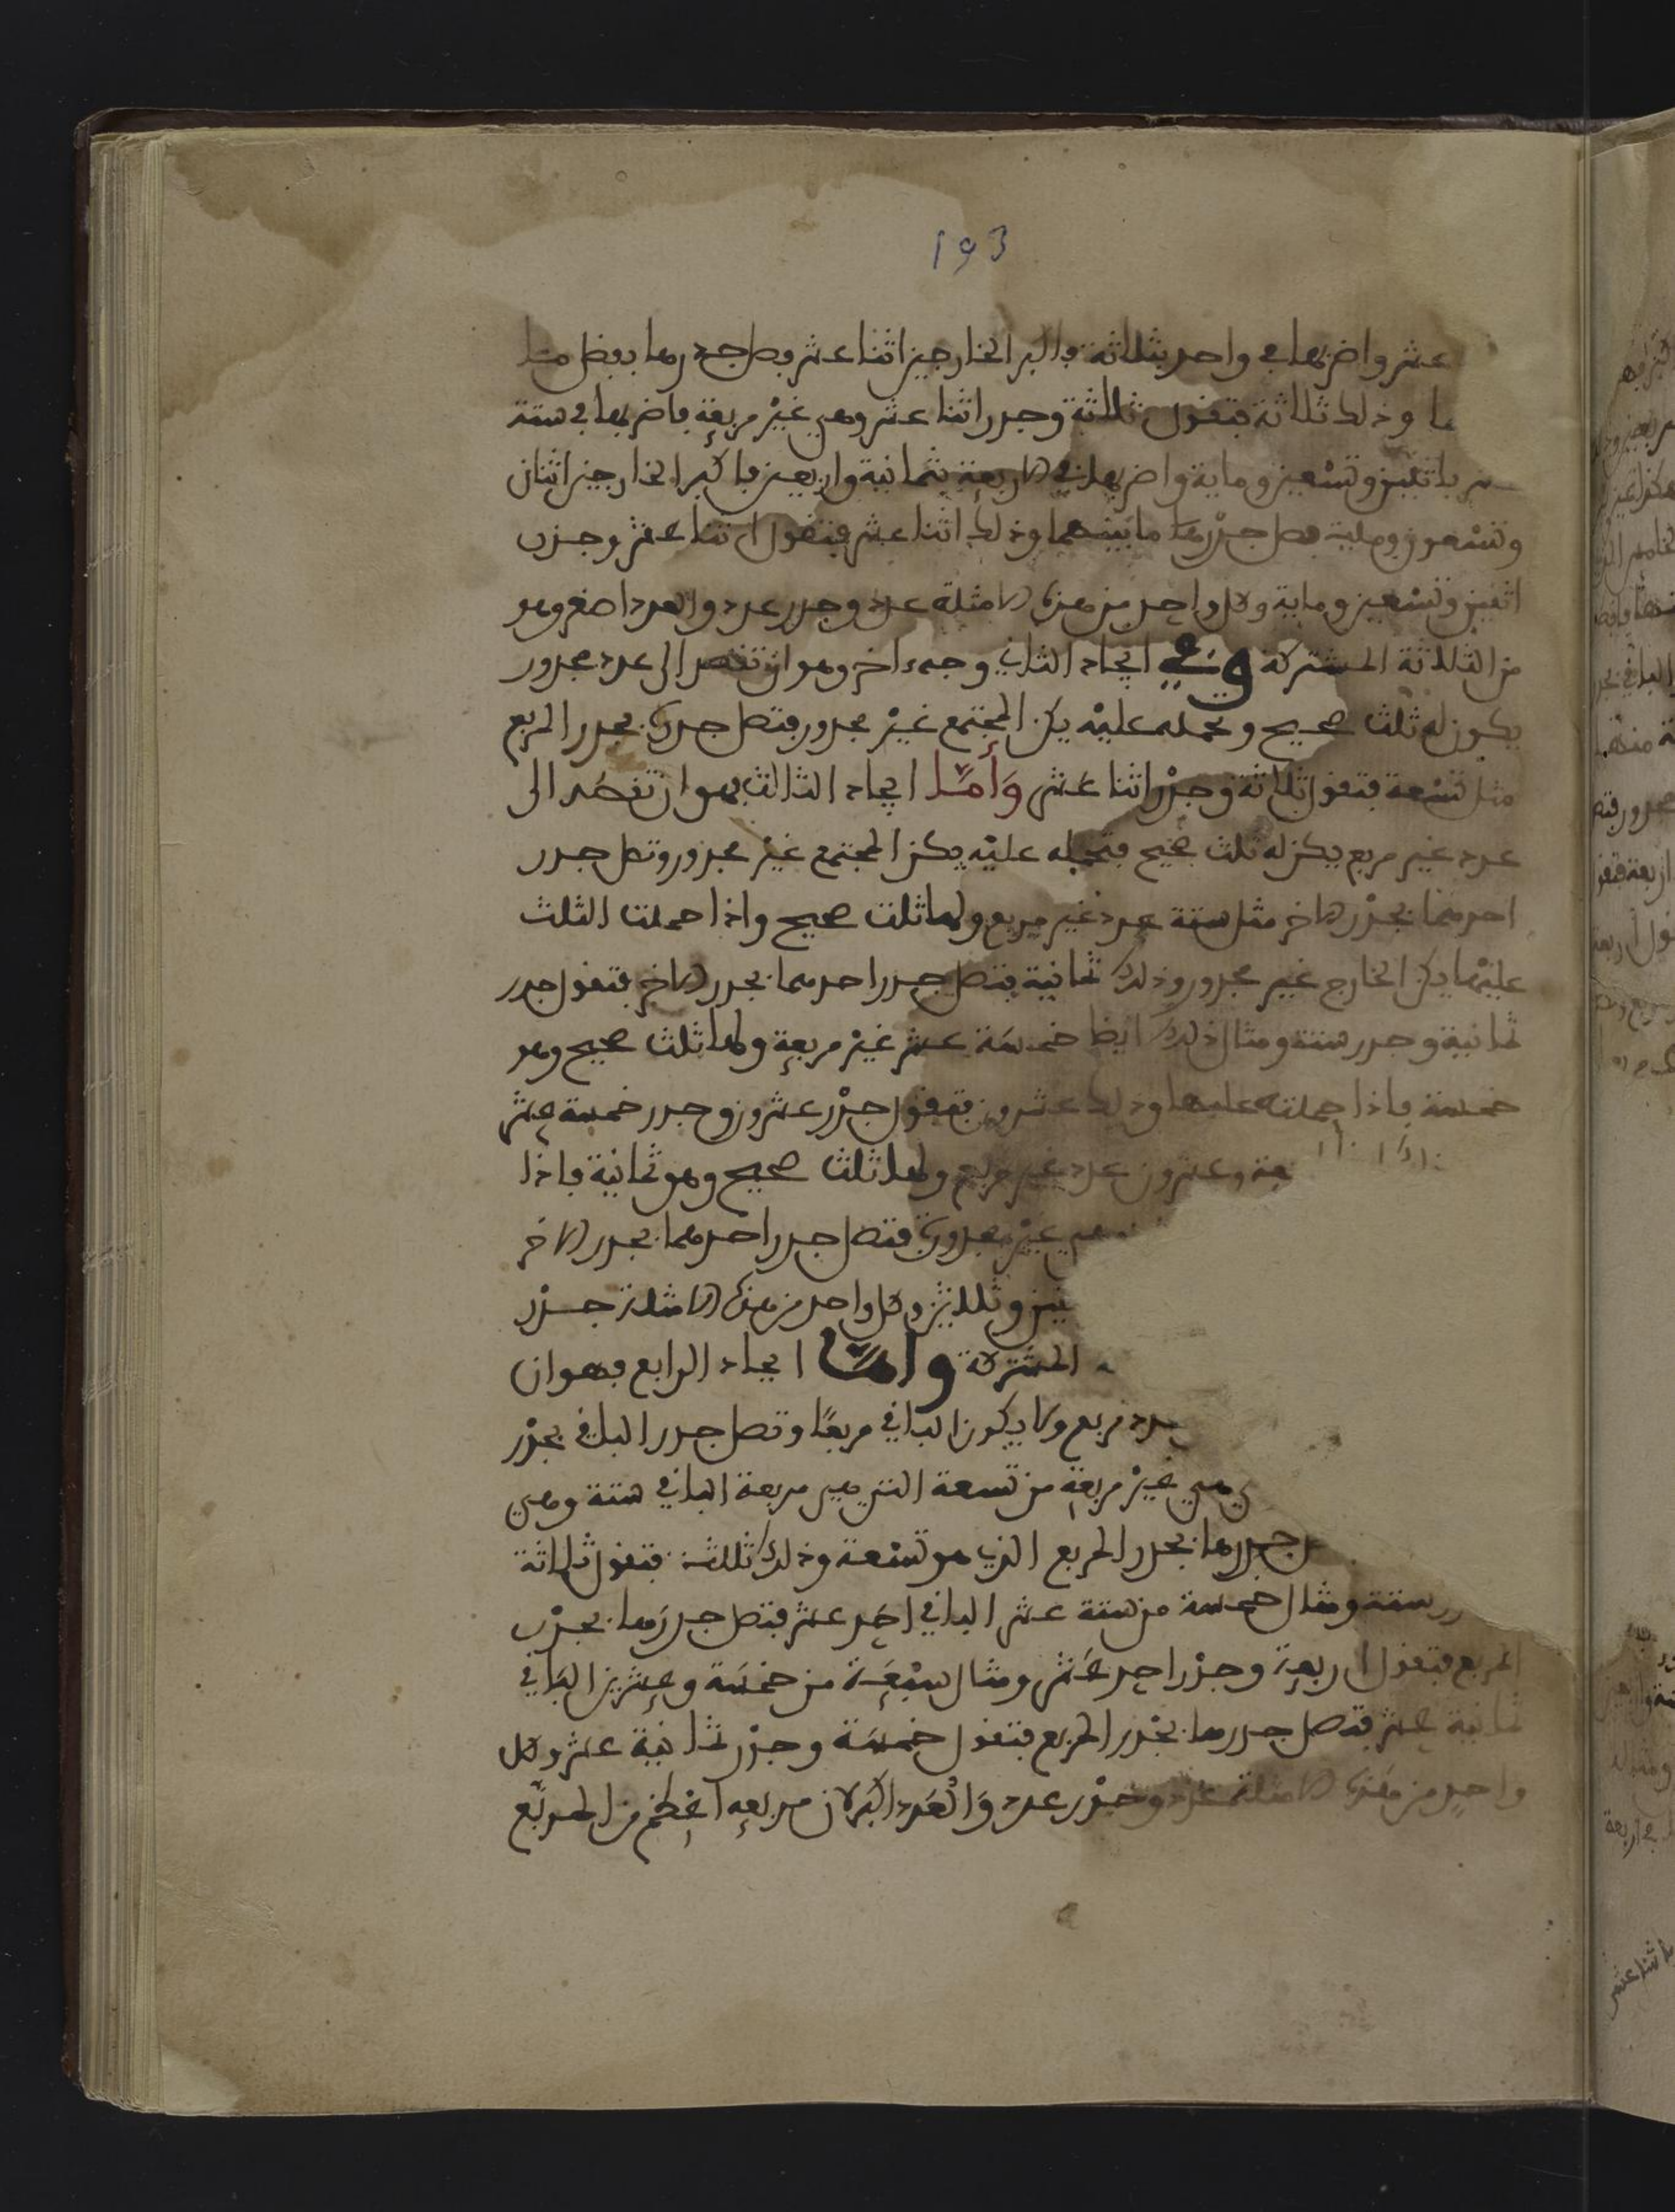 193
عشر واضربها في واحد بثلاثة فاكبر الخارجين اثنا عشر وصل جدرها بفضل
ما وذلك ثلاثة فتقول ثلاثة وجدر اثنا عشر وهي غير مربعة فاضربها في ستة
باثنين وتسعين وماية واضربها في الاربعة بثمانية واربعين فاكبر الخارجين اثنان
وتسعون وماية فصل جدرها ما بينهما وذلك اثنا عشر فتقول اثنا عشر وجدر
اثنين وتسعين وماية وكل واحد من هذه الامثلة عدد وجدر عدد والعدد اصغر وهو
من الثلاثة المشتركة وفي ايجاد الثاني وجه ءاخر وهو ان تقصد الى عدد مجدور
يكون له ثلث صحيح وتحمله عليه يكن المجتمع غير مجدور فتصل جدره بجدر المربع
مثل تسعة فتقول ثلاثة وجدر اثنا عشر وأما ايجاد الثالث فهو ان تقصد الى
عدد غير مربع يكن له ثلث صحيح فتحمله عليه يكن المجتمع غير مجدور وتصل جدر
احدهما بجدر الاخر مثل ستة عدد غير مربع ولها ثلث صحيح واذا حملت الثلث
عليها يكن الخارج غير مجدور وذلك ثمانية فتصل جدر احدهما بجدر الاخر فتقول جدر
ثمانية وجدر ستة ومثال ذلك ايضا خمسة عشر غير مربعة ولها ثلث صحيح وهو
خمسة فاذا حملته عليها وذلك عشرون فتقول جدر عشرون وجدر خمسة عشر
وعشرون عدد غير مربع ولها ثلث صحيح وهو ثمانية فاذا
هي غير مجدورة فتصل جدر احدهما بجدر الاخر
وثلاثين وكل واحد من هذه الامثلة جدر
المشتركة وأما ايجاد الرابع فهو ان
عدد مربع ولا يكون الباقي مربعا وتصل جدر الباقي بجدر
هي غير مربعة من تسعة التي هي مربعة الباقي ستة وهي
جدرها بجدر المربع الذي هو تسعة وذلك ثلاثة فتقول ثلاثة
ستة ومثال خمسة من ستة عشر الباقي احد عشر فتصل جدرها بجدر
المربع فتقول اربعة وجدر احد عشر ومثال سبعة من خمسة وعشرين الباقي
ثمانية عشر فتصل جدرها بجدر المربع فتقول خمسة وجدر ثمانية عشر وكل
واحد من هذه الامثلة عدد وجدر عدد والعدد اكبر لان مربعه اعظم من المربع